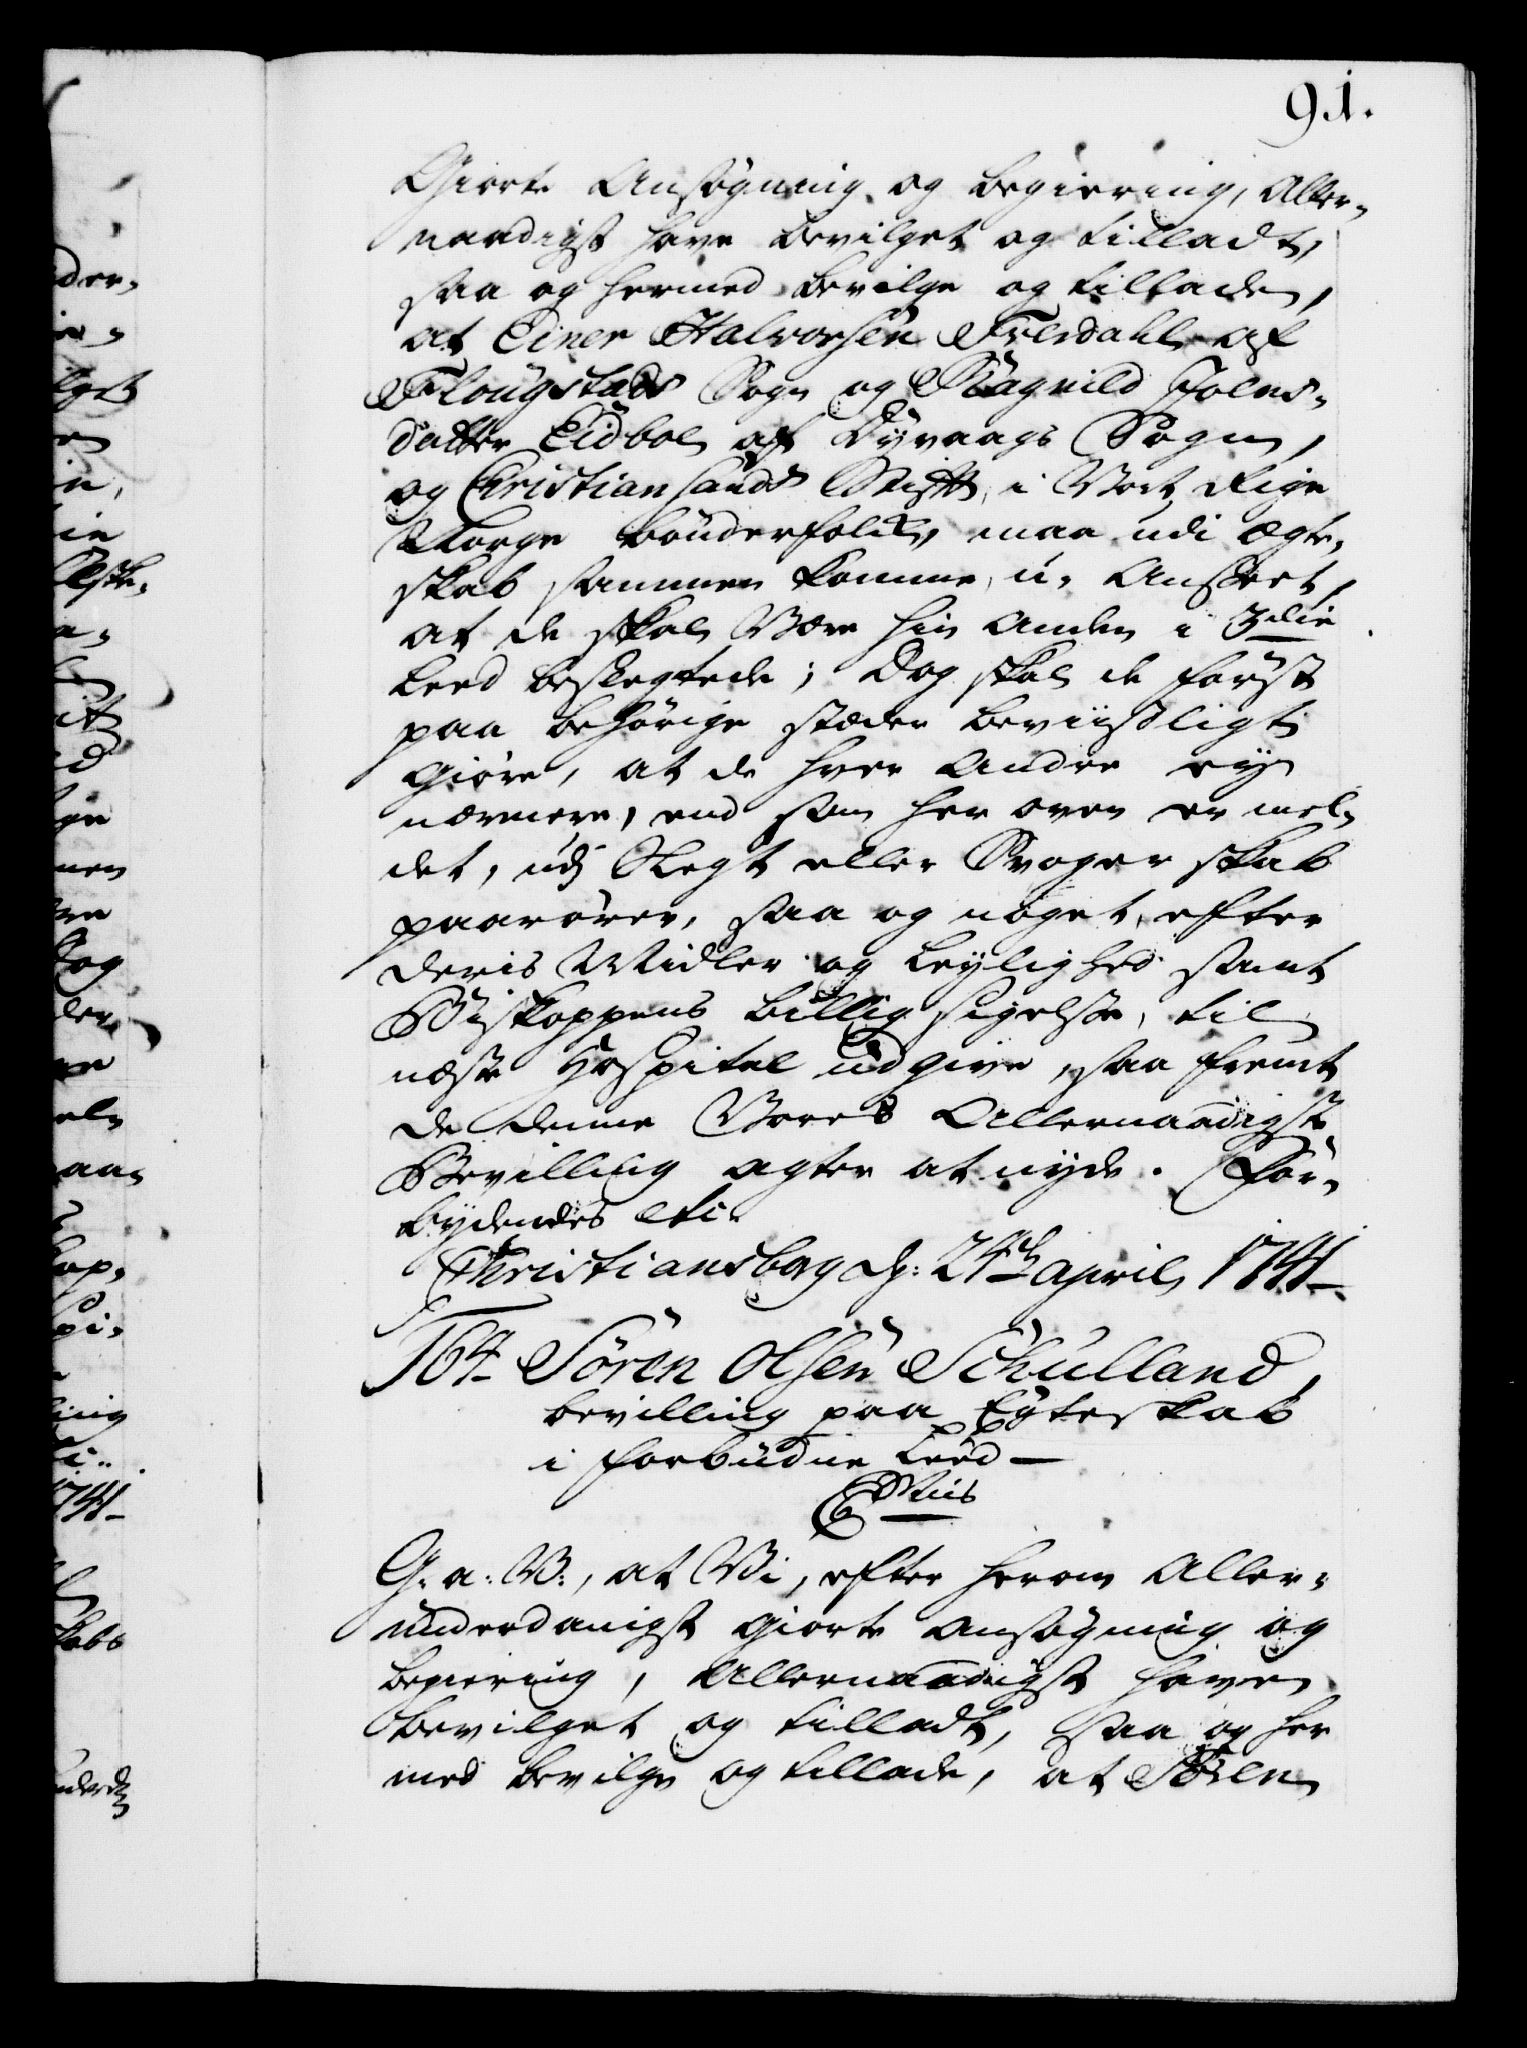 91.
Giorte Ansøgning og begiering, Aller-
naadigst have bevilget og tilladt,
saa og hermed bevilge og tillade,
at Einer Halvorsen Trerdahl af
Flougstads Sogn og Ragnild Joens-
datter Eidboe af Dyvaags Sogn,
og Christiansands Stift, i Vort Rige
Norge bønderfolk, maa udi Ægte-
skab sammen komme, u-Anseet,
at de skal Være hin anden i 3die
Leed beslegtede; Dog skal de først
paa behørige stæder beviisligt
giøre, at de hver Andre ey
nærmere, end som her oven er mel-
det, udj Slegt eller Svogerskab
paarører, saa og noget, efter
deris Midler og Leylighed samt
Biskoppens billig sigelse, til
næste Hospital udgive, saa fremt
de denne Vores Allernaadigste
Bevilling agter at nyde. For-
bydendes etc.
Christiansborg d: 24de april 1741.
164 Søren Olsen Schulland,
bevilling paa Egteskab
i forbudne Leed -
Gratis
G. a: V:, at Vi, efter herom Aller-
underdanigst giorte ansøgning og
begiering, Allernaadigst have
bevilget og tilladt, saa og her
med bevilge og tillade, at Søren